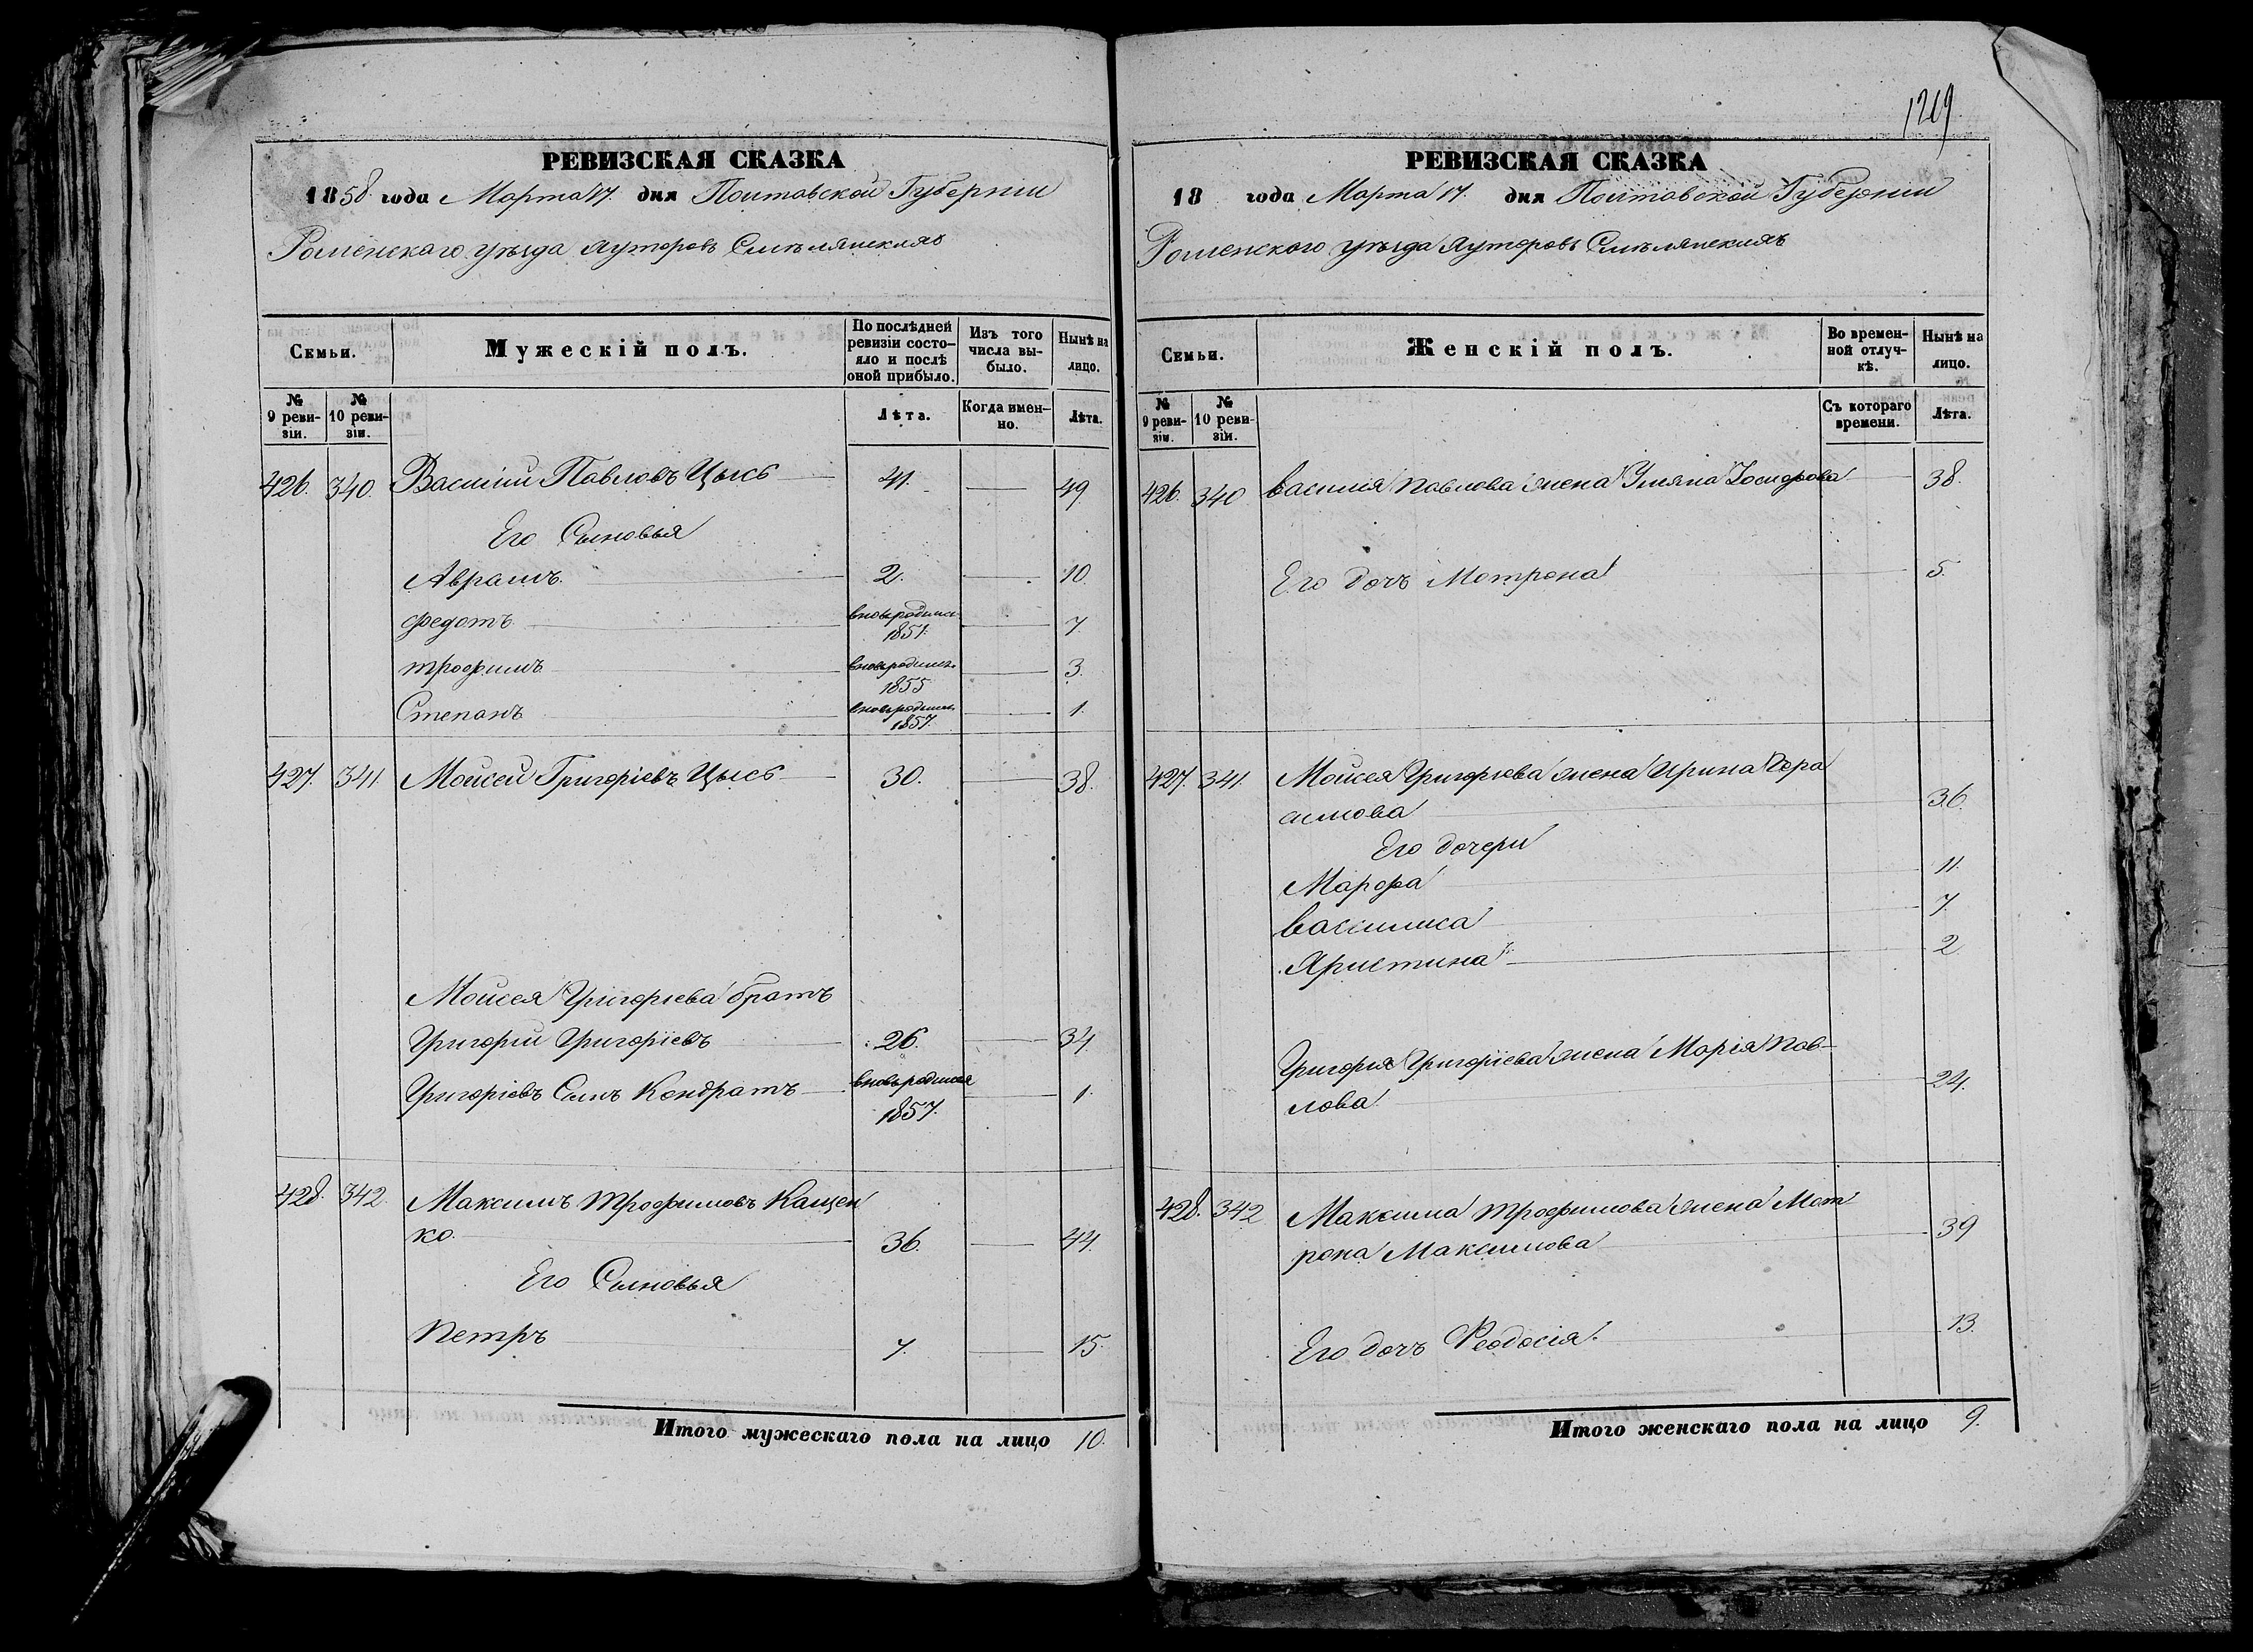 1269
РЕВИЗСКАЯ СКАЗКА
1858 года Марта 17. дня Полтавской Губерніи
Роменскаго уѣзда хуторовъ Смѣлянскихъ
Семьи.
Мужескій полъ.
По послѣдней ревизіи состояло и послѣ оной прибыло.
Изъ того числа выбыло.
Нынѣ на лицо.
№ 9 ревизіи.
№ 10 ревизіи.
Лѣта.
Когда именно.
Лѣта.
426. 340. Василій Павловъ Цысь 41. 49
Его Сыновья
Аврамъ 2. 10.
Федотъ вновьродился 1851. 7.
Трофимъ вновьродился 1855 3.
Степанъ вновьродился 1857. 1.
427. 341 Мойсей Григоріевъ Цысь 30. 38.
Мойсея Григорьева братъ
Григорій Григоріевъ 26. 34.
Григоріевъ Сынъ Кондратъ вновьродился 1857. 1.
428. 342. Максимъ Трофимовъ Кащен
ко 36. 44.
Его Сыновья
Петръ 7. 15.
Итого мужескаго пола на лицо 10.
РЕВИЗСКАЯ СКАЗКА
18 года Марта 17. дня Полтавской Губерніи
Роменского уѣзда хуторовъ Смѣлянскихъ
Семьи.
Женскій полъ.
Во временной отлучкѣ.
Нынѣ на лицо.
№ 9 ревизіи.
№ 10 ревизіи.
Съ котораго времени.
Лѣта.
426. 340 Василія Павлова жена Уляна 38.
Его дочь Мотрона 5.
427. 341. Мойсея Григорьева жена Ирина Гера
симова 36.
Его дочери
Марфа 11.
Василиса 7.
Христина 2
Григорія Григоріева жена Марія Пав-
лова 24.
428. 342 Максима Трофимова жена Мот
рона Максимова 39
Его дочь Феодосія. 13.
Итого женскаго пола на лицо 9.